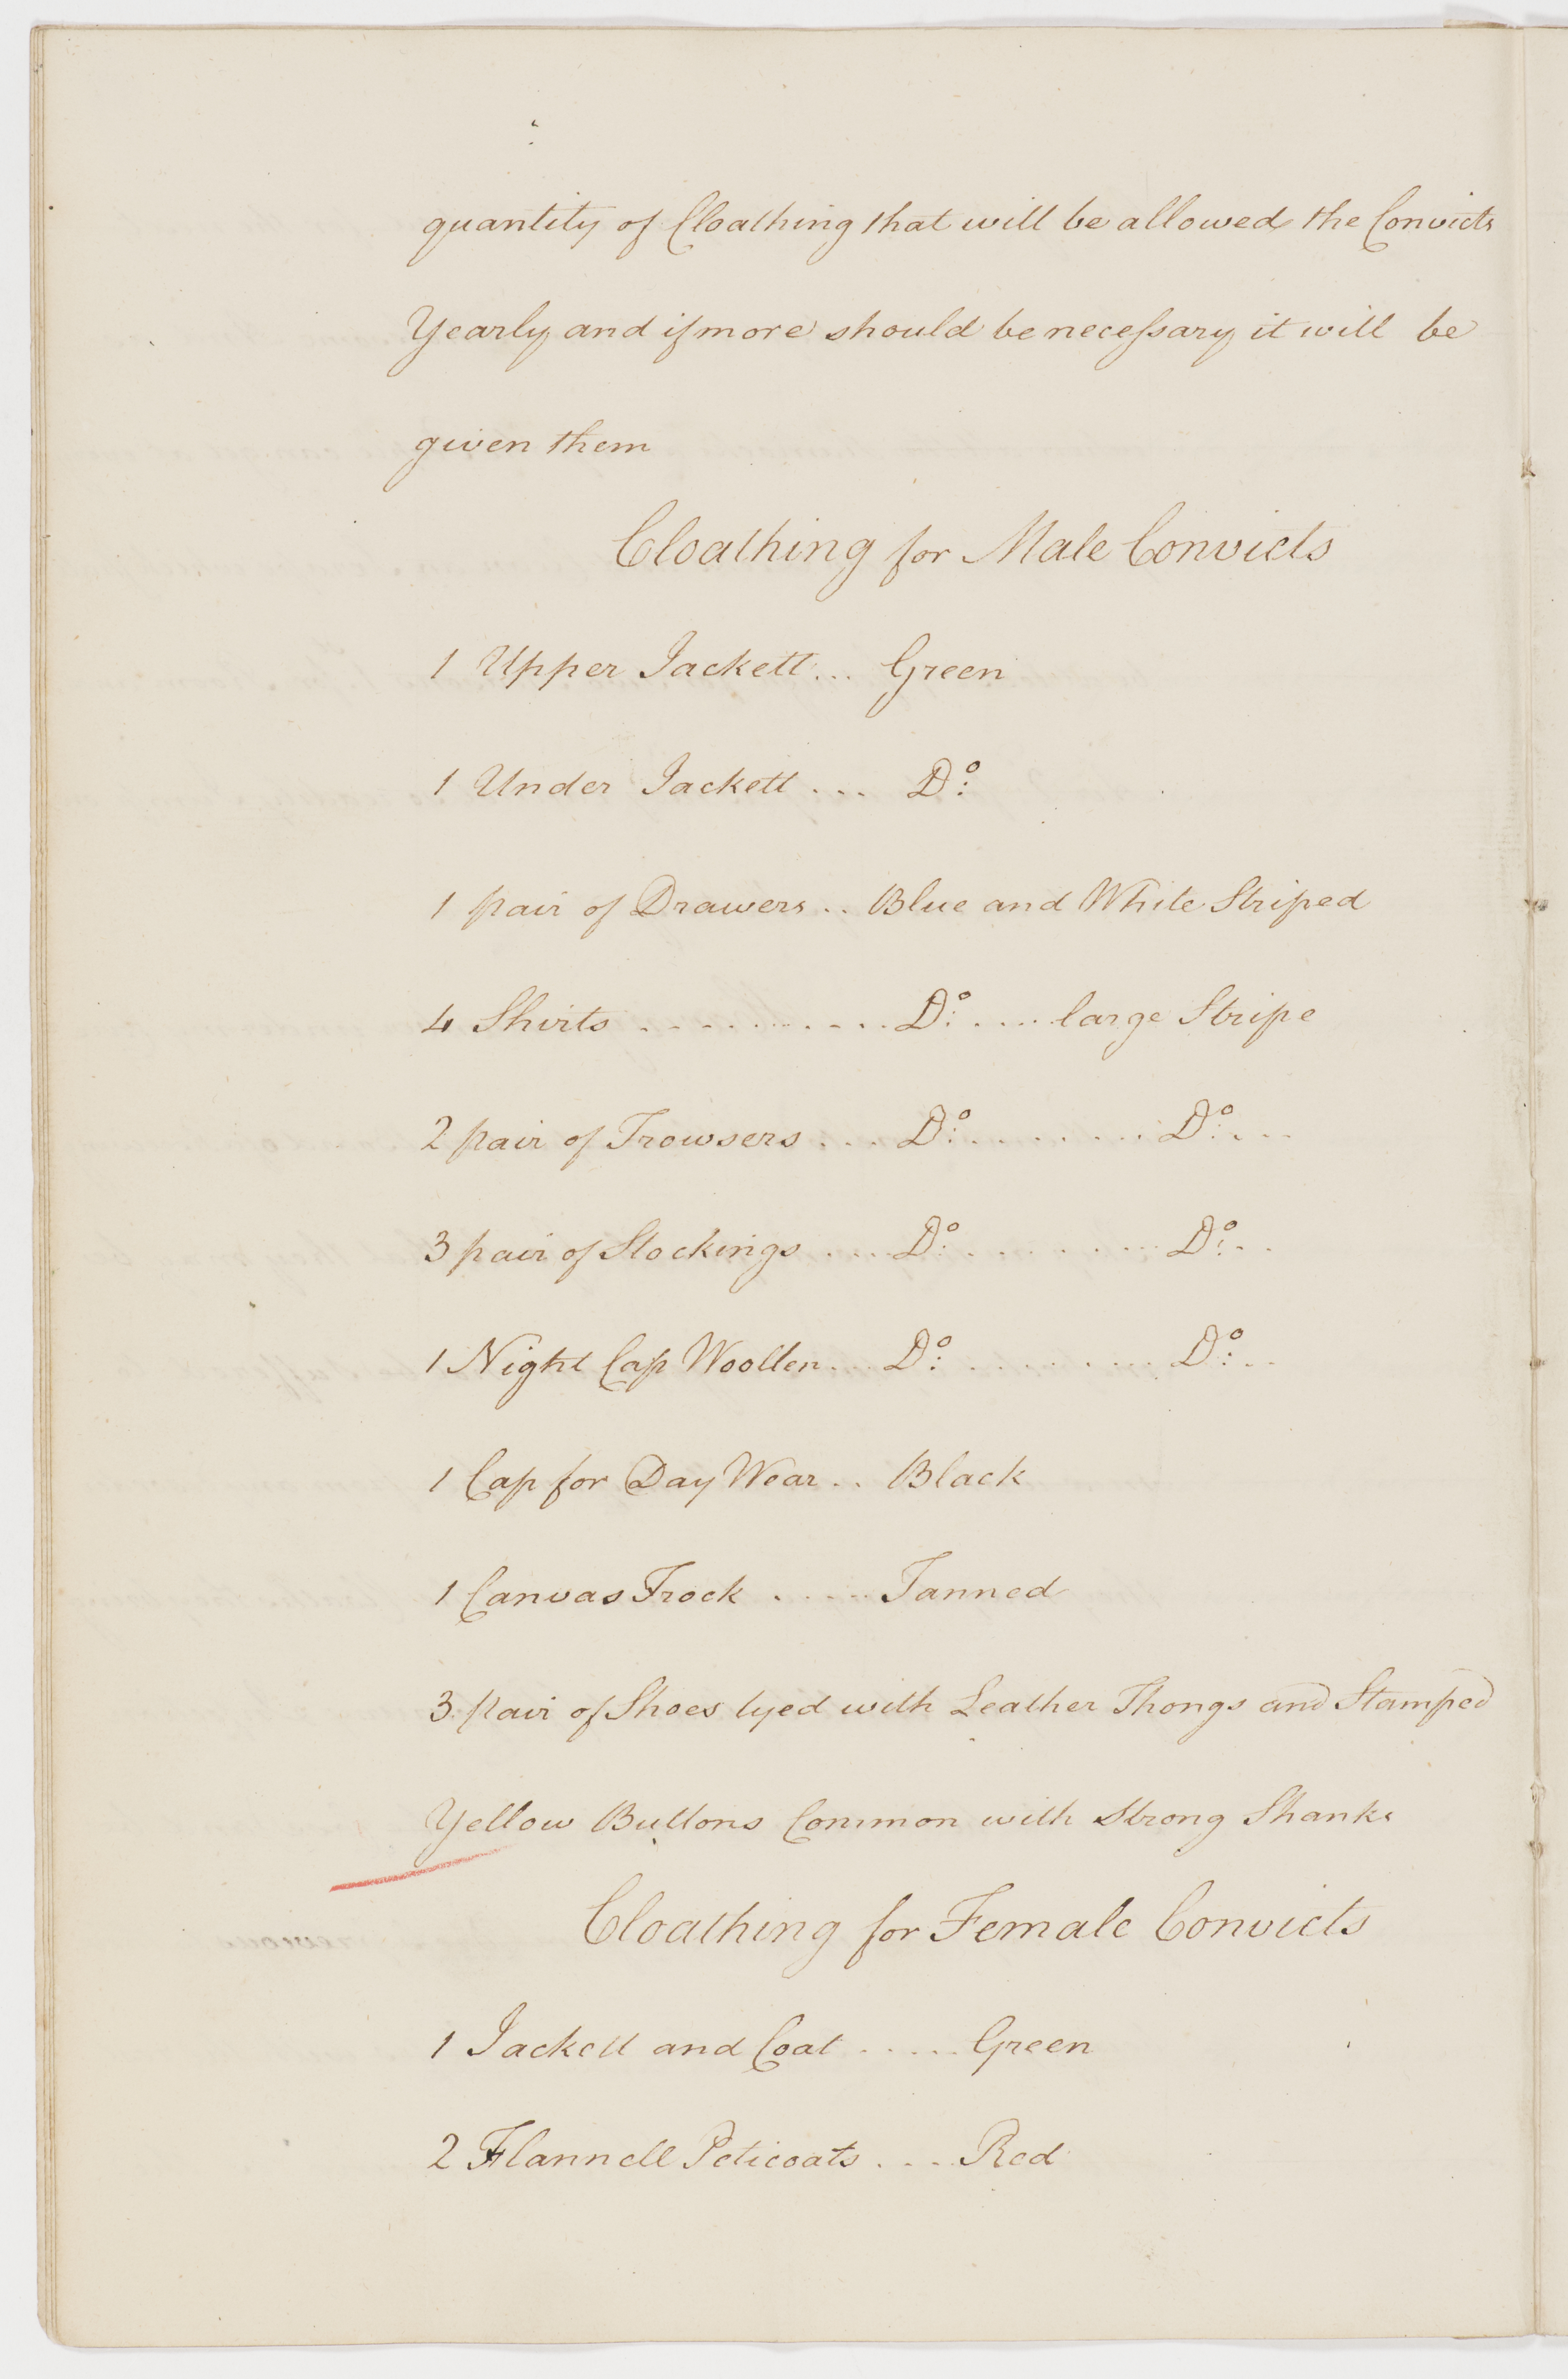 quantity of Cloathing that will be allowed the Convicts
Yearly and if more should be necessary it will be
given them
Cloathing for Male Convicts
1 Upper Jackett... Green
1 Under Jackett ... Do:
1 pair of Drawers .. Blue and White Striped
4 Shirts ........... Do: .... large Stripe
2 pair of Trowsers ... Do: ........ Do: ...
3 pair of Stockings .... Do: ........ Do: ..
1 Night Cap Woollen ... Do: ........ Do: ..
1 Cap for Day Wear .. Black
1 Canvas Frock ..... Tanned
3 pair of Shoes tyed with Leather Thongs and Stamped
Yellow Buttons Common with Strong Shanks
Cloathing for Female Convicts
1 Jackett and Coat ..... Green
2 Flannell Peticoats .... Red